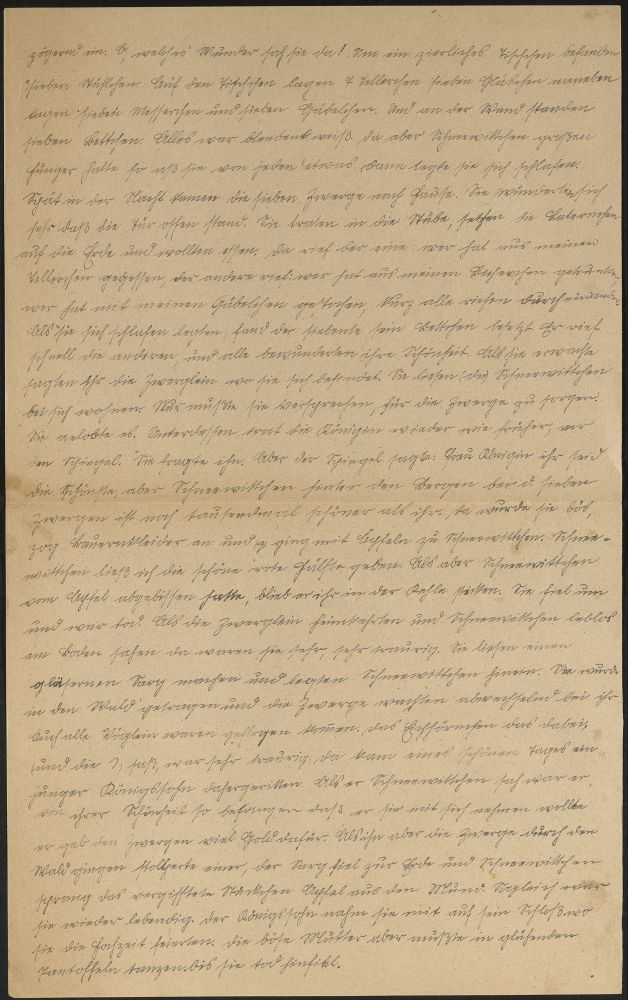 zögernd ein. O, welches Wunder sah sie da! Um ein zierliches Tischchen befanden
sieben Stühlchen. Auf den Tischchen lagen 7 Tellerchen sieben Gläschen daneben
lagen sieben Messerchen und sieben Gäbelchen. Und an der Wand standen
sieben Bettchen. Alles war blendend weiß, da aber Schneewittchen großen
Hunger hatte so aß sie von jeden etwas. Dann legte sie sich schlafen.
Spät in der Nacht kamen die sieben Zwerge nach Hause. Sie wunderten sich
sehr daß die Tür offen stand. Sie traten in die Stube, setzten die Laternchen
auf die Erde und wollten essen. Da rief der eine: wer hat aus meinen
Tellerchen gegessen, der andere rief: wer hat aus meinen Becherchen getrunken
wer hat mit meinen Gäbelchen gestochen, kurz alle riefen durcheinander.
Als sie sich schlafen legten, fand der siebente sein Bettchen besetzt. Er rief
schnell die anderen, und alle bewunderten ihre Schönheit. Als sie erwachte
sagten ihr die Zwerglein wo sie sich befindet. Sie ließen (die) Schneewittchen
bei sich wohnen. Nur mußte sie versprechen, für die Zwerge zu sorgen.
Sie gelobte es. Unterdessen trat die Königin wieder wie früher, vor
den Spiegel. Sie fragte ihn. Aber der Spiegel sagte: Frau Königin ihr seid
die Schönste, aber Schneewittchen hinter den Bergen bei d sieben
Zwergen ist noch tausendmal schöner als ihr. Da wurde sie bös,
zog Bauernkleider an und ging mit Äpfeln zu Schneewittchen. Schnee-
wittchen ließ sich die schöne rote Hälfte geben. Als aber Schneewittchen
vom Apfel abgebissen hatte, blieb er ihr in der Kehle stecken. Sie fiel um
und war tod. Als die Zwerglein heimkehrten und Schneewittchen leblos
am Boden sahen da waren sie sehr, sehr traurig. Sie ließen einen
gläsernen Sarg machen und legten Schneewittchen hinein. Sie wurde
in den Wald getragen und die Zwerge wachten abwechselnd bei ihr
Auch alle Vöglein waren geflogen kommen. Das Eichhörnchen das dabei,
(und die ?) saß war sehr traurig. Da kam eines schönen Tages ein
junger Königssohn dahergeritten. Als er Schneewittchen sah war er
von ihrer Schönheit so befangen daß er sie mit sich nehmen wollte
er gab den Zwergen viel Gold dafür. Als ihn aber die Zwerge durch den
Wald gingen stolperte einer, der Sarg fiel zur Erde und Schneewittchen
sprang das vergiftete Stückchen Apfel aus den Mund. Sogleich war
sie wieder lebendig. Der Königssohn nahm sie mit auf sein Schloß wo
sie die Hochzeit feierten. Die böse Mutter aber mußte in glühenden
Pantoffeln tanzen bis sie tod hinfiel.